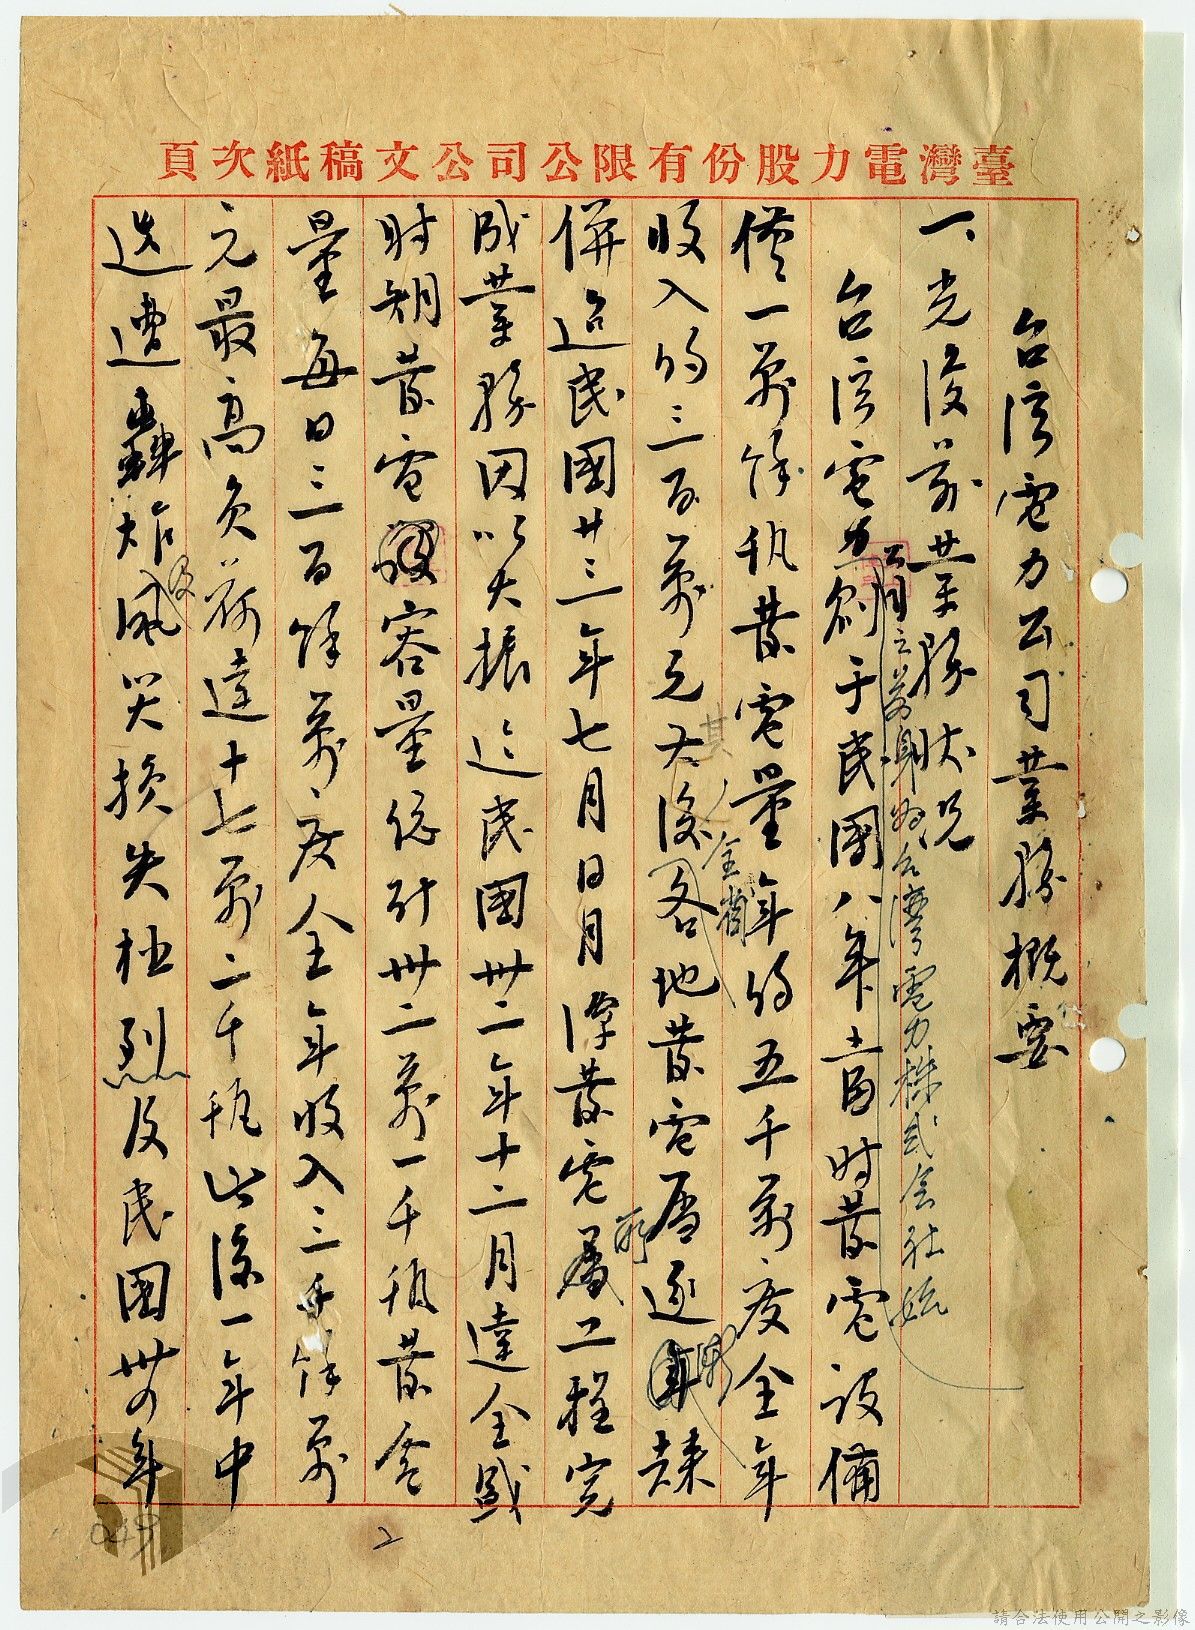 臺灣電力股份有限公司公文稿紙次頁
台湾電力公司業務概要
一、光復前業務狀況
公司之前身為台灣電力株式会社始
台湾電力創于民國八年當时發電設備
僅一萬餘瓩發電量年約五千萬度全年
收入約三百萬元
其後全省各地發電所逐漸
併 迨民國廿三年七月日月潭發電所工程完
成業務因以大振迄民國卅二年十二月達全盛
时期發電容量總计卅二萬一千瓩發電
量每日三百餘萬度全年收入三千餘萬
元最高負荷達十七萬二千瓩此後一年中
迭遭轟炸及風災損失極烈及民國卅四年
2
049
請合法使用公開之影像